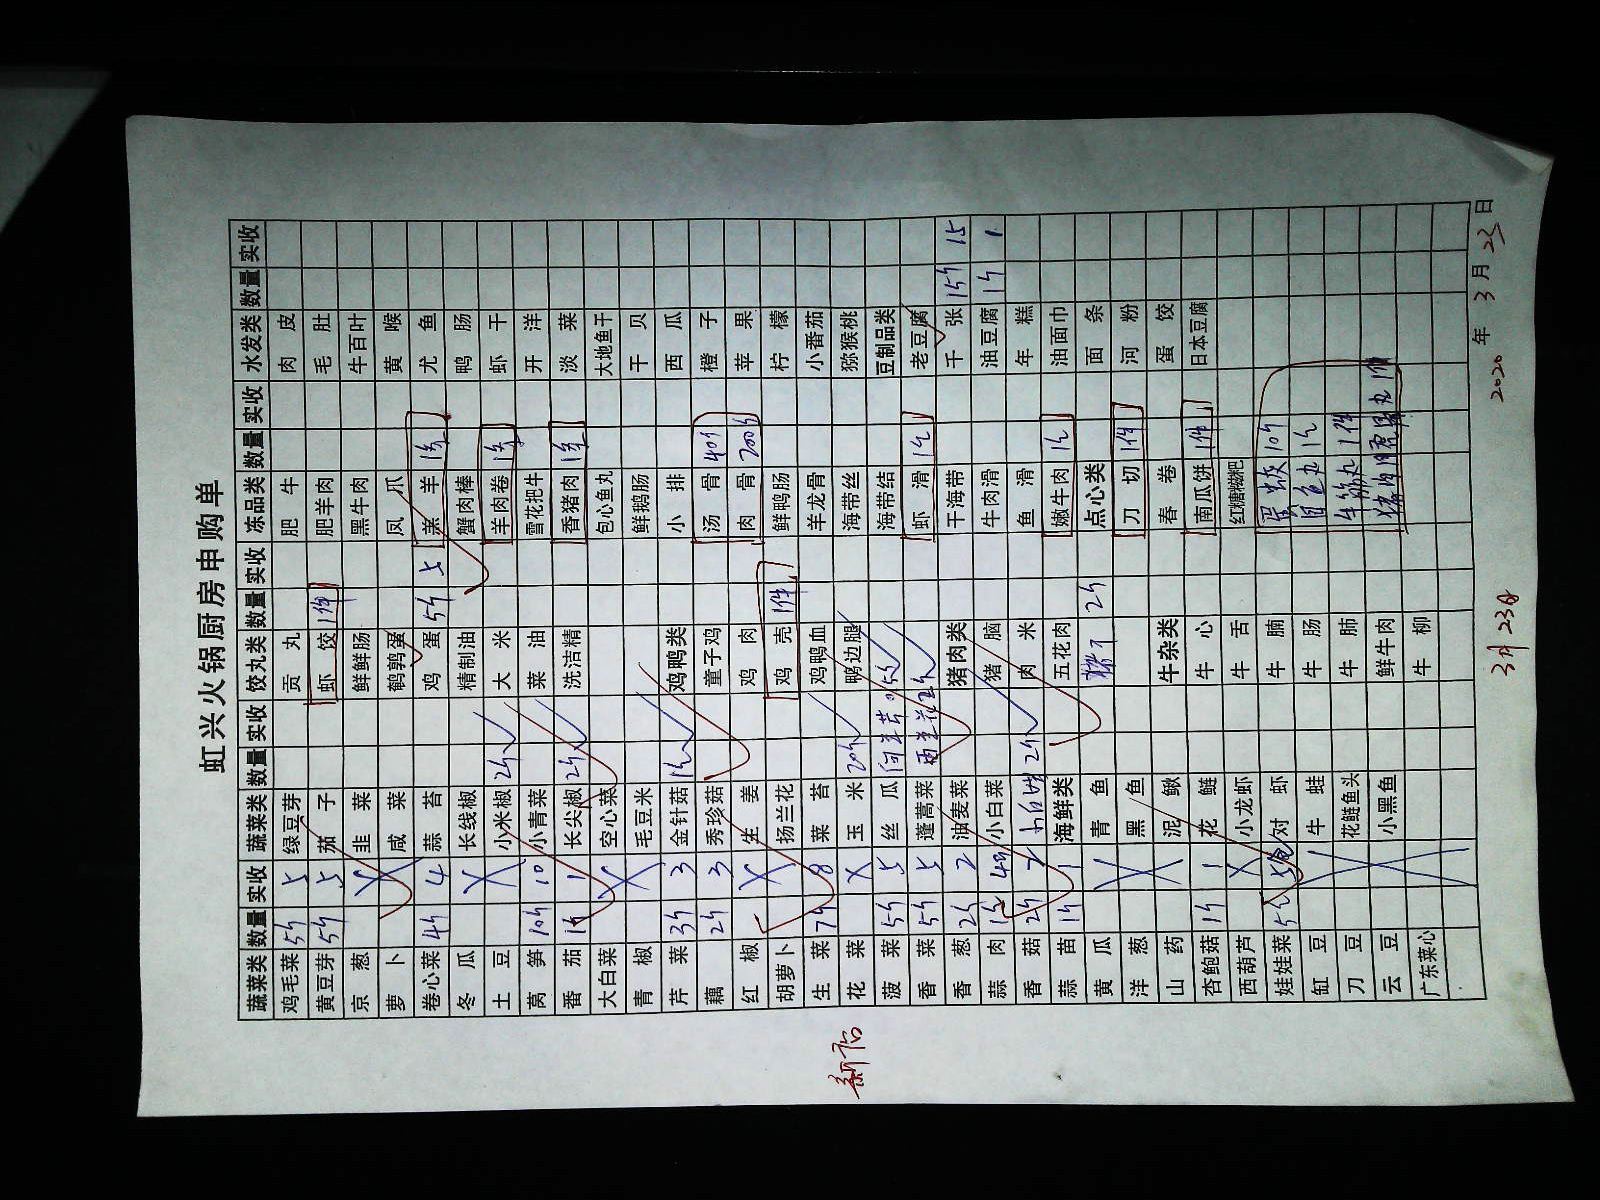 虹兴火锅厨房申购单
蔬菜类 数量 实收 蔬菜类 数量 实收 饺丸类 数量 实收 冻品类 数量 实收 水发类 数量 实收
鸡毛菜 5斤 5 绿豆芽 贡丸 肥牛 肉皮
黄豆芽 5斤 5 茄子 虾饺 1件 肥羊肉 毛肚
京葱 韭菜 鲜鲜肠 黑牛肉 牛百叶
萝卜 咸菜 鹌鹑蛋 凤爪 黄喉
卷心菜 4斤 4 蒜苔 鸡蛋 5斤 5 羔羊 1条 尤鱼
冬瓜 长线椒 精制油 蟹肉棒 鸭肠
土豆 小米椒 2斤 大米 羊肉卷 1条 虾干
莴笋 10斤 10 小青菜 菜油 雪花把牛 开洋
番茄 1斤 1 长尖椒 2斤 洗洁精 香猪肉 1条 淡菜
大白菜 空心菜 包心鱼丸 大地鱼干
青椒 毛豆米 鲜鹅肠 干贝
芹菜 3斤 3 金针菇 1包 鸡鸭类 小排 西瓜
藕 2斤 3 秀珍菇 童子鸡 汤骨 40斤 橙子
红椒 生姜 鸡肉 肉骨 200斤 苹果
胡萝卜 扬兰花 鸡壳 1件 鲜鸭肠 柠檬
生菜 7斤 8 菜苔 鸡鸭血 羊龙骨 小番茄
花菜 玉米 20斤 鸭边腿 海带丝 猕猴桃
菠菜 5斤 5 丝瓜 海带结 豆制品类
香菜 5斤 5 蓬蒿菜 西兰花 虾滑 1包 老豆腐
香葱 2斤 2 油麦菜 猪肉类 干海带 千张 15斤 15
蒜肉 小白菜 猪脑 牛肉滑 油豆腐 1斤 1
香菇 2斤 2 2斤 肉米 鱼滑 年糕
蒜苗 1斤 1 海鲜类 五花肉 嫩牛肉 1包 油面巾
黄瓜 青鱼 猪肝 2斤 点心类 面条
洋葱 黑鱼 刀切 1件 河粉
山药 泥鳅 牛杂类 春卷 蛋饺
杏鲍菇 1斤 1 花鲢 牛心 南瓜饼 1件 日本豆腐
西葫芦 小龙虾 牛舌 红糖糍粑
娃娃菜 对虾 牛腩 蛋饺 10斤
缸豆 牛蛙 牛肠 鱼丸 1包
刀豆 花鲢鱼头 牛肺 牛筋丸 1件
云豆 小黑鱼 鲜牛肉 1件
广东菜心 牛柳
3月23日 2020年3月23日